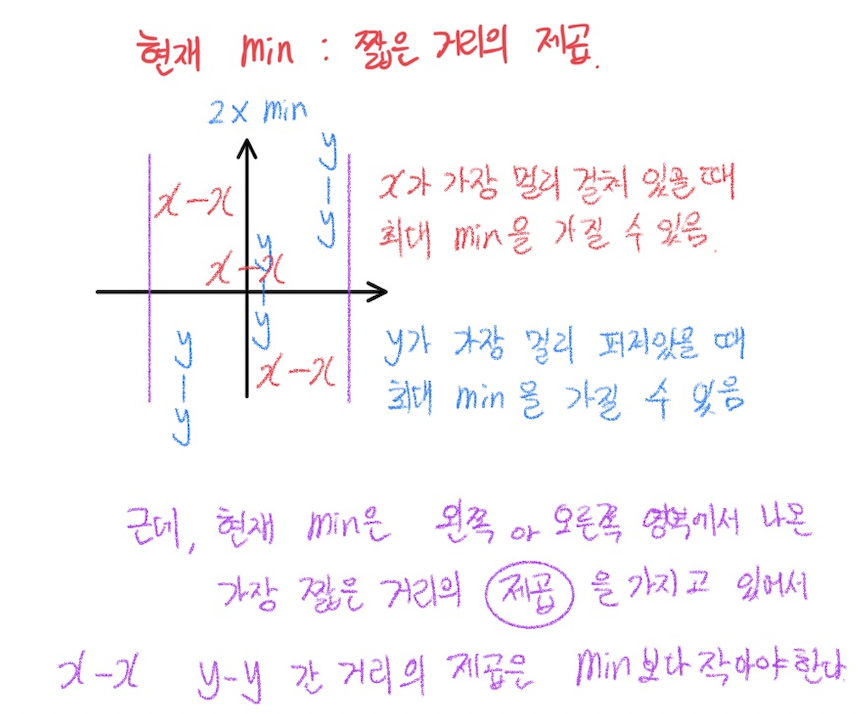 현재 min : 짧은 거리의 제곱.
2 x min
x-x
y-y
x-x
y-y
x가 가장 멀리 걸쳐 있을 때
최대 min을 가질 수 있음.
y-y
x-x
y가 가장 멀리 퍼져있을 때
최대 min을 가질 수 있음
근데, 현재 min은 왼쪽 아 오른쪽 영역에서 나온
가장 짧은 거리의 제곱을 가지고 있어서
x-x y-y 간 거리의 제곱은 min보다 작아야한다.